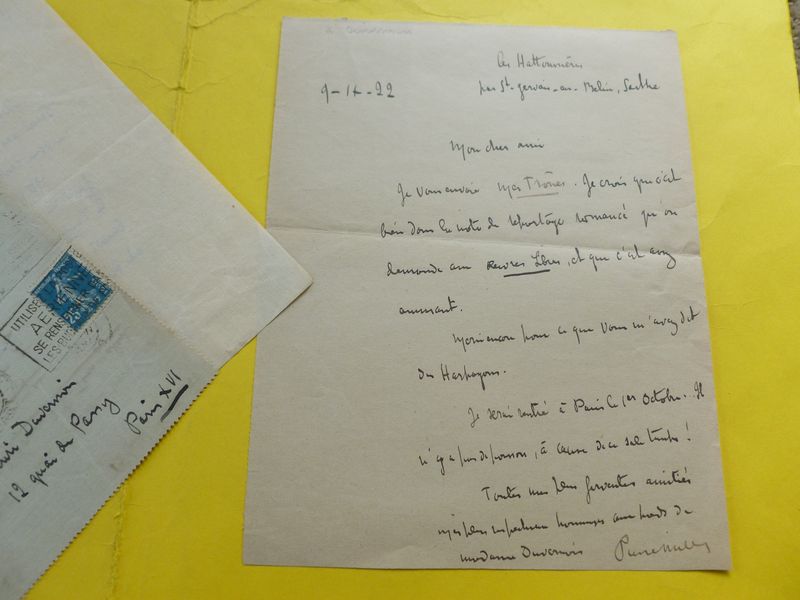 à Duvernois
Les Hattonnières
9-IX-22 par St-Gervais-en-Belin, Sarthe
Mon cher ami
Je vous envoie mes Trônes. Je crois que c'est
bien dans la note de reportage romancé qu'on
demande aux Œuvres Libres, et que c'est assez
amusant.
Merci encore pour ce que vous m'avez dit
des Harpagons.
Je serai rentré à Paris le 1er Octobre. Il
n'y a pas de poisson, à cause de ce sale temps !
Toutes mes plus ferventes amitiés
mes plus respectueux hommages aux pieds de
madame Duvernois Pierre
UTILISE
SE RENS
LES BU
25
Duvernois
12 quai de Passy
Paris XVI